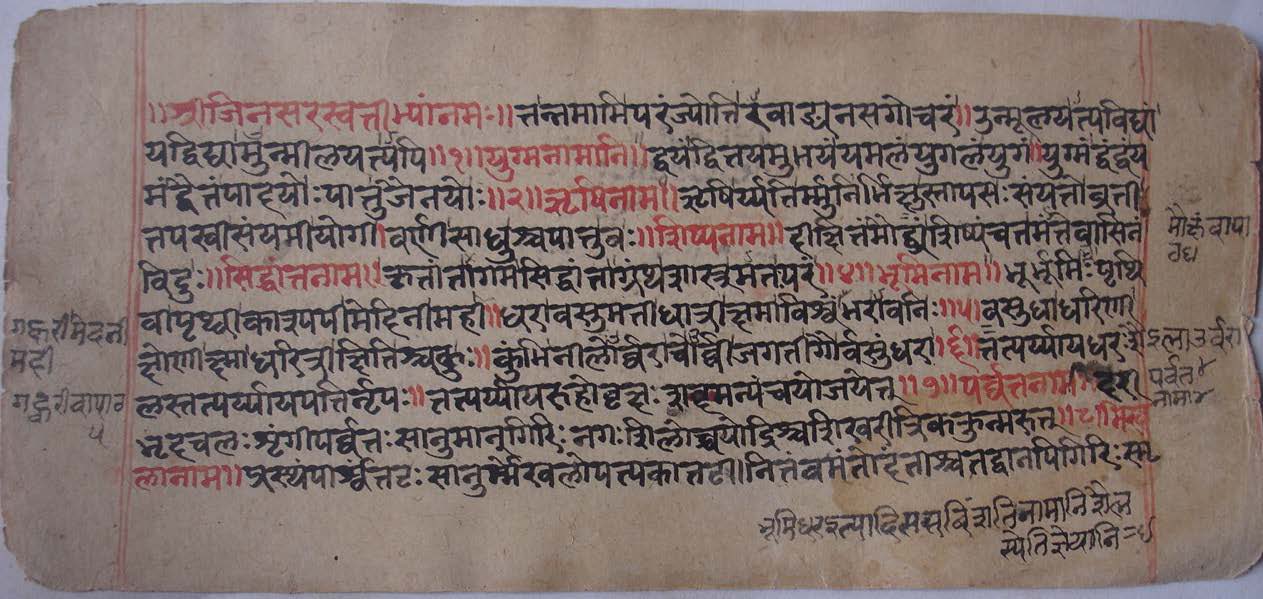 ॥श्रीजिनसरस्वतीभ्यांनमः॥ तन्नमामिपरंज्योतिरवाङ्मनसगोचरं॥उन्मूलयत्यविद्यां
यद्विद्यामुन्मीलयत्यपि॥१॥युग्मनामानि॥द्वयंद्वितयमुभयंयमलंयुगलंयुगं॥युग्मंद्वंद्वंय
मंद्वैतंपादयोःपातुजैनयोः॥२॥ऋषिनाम॥ऋषिर्य्यतिर्म्मुनिर्भिक्षुस्तापसःसंयतोव्रती
तपस्वीसंयमीयोगीवर्णीसाधुश्चपातुवः॥शिष्यनाम॥दीक्षितंमौंड्यंशिष्यंचतमंतेवासिनं
विदुः॥सिद्धांतनाम॥कृतांतागमसिद्धांताग्रंथशास्त्रमतःपरं॥४॥भूमिनाम॥भूर्भूमिःपृथि
वीपृथ्वी मेदिनीमही॥धरावसुमतीधात्रीक्ष्माविश्वंभरावनिः॥५॥वसुधाधारिणी
क्षोणीक्ष्माधरित्रीक्षितिश्चकुः॥कुंभिनीलोर्व्वराचोर्व्वीजगतीगौर्वसुंधरा॥६॥तत्पर्य्यायधरःशै
लस्तत्पर्य्यायपतिर्नृपः॥तत्पर्य्यायरुहोवृक्षःशब्दमन्यंचयोजयेत्॥७॥पर्व्वतनाम॥
भृदचलःशृंगीपर्व्वतःसानुमान्गिरिः॥नगःशिलोच्चयोद्रिश्चशिखरीत्रिककुन्मरुत्॥८॥मेख
लानाम॥अस्यपार्श्वंतटःसानुर्म्मेखलोपत्यकातटी॥नितंबमंतोदंताश्चतद्वानपिगिरिःस्मृ
गह्वरीमेदनी
मही
गह्वरीवापाठ
शैइला उर्वरा
पर्वत
नामा
भूमिधरइत्यादिसप्तविंशतिनामानिशैल
स्येतिज्ञेयानि